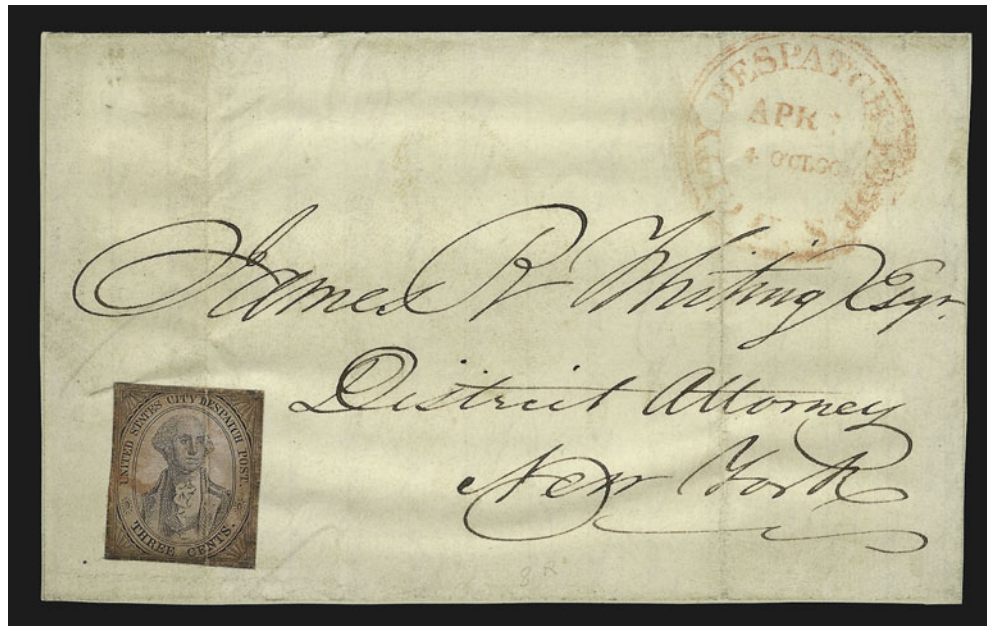 CITY DESPATCH POST
U.S
APR
4 O'CLOCK
James R Whiting Esqr.
District Attorney
New York
UNITED STATES CITY DESPATCH POST.
THREE CENTS.
8 R